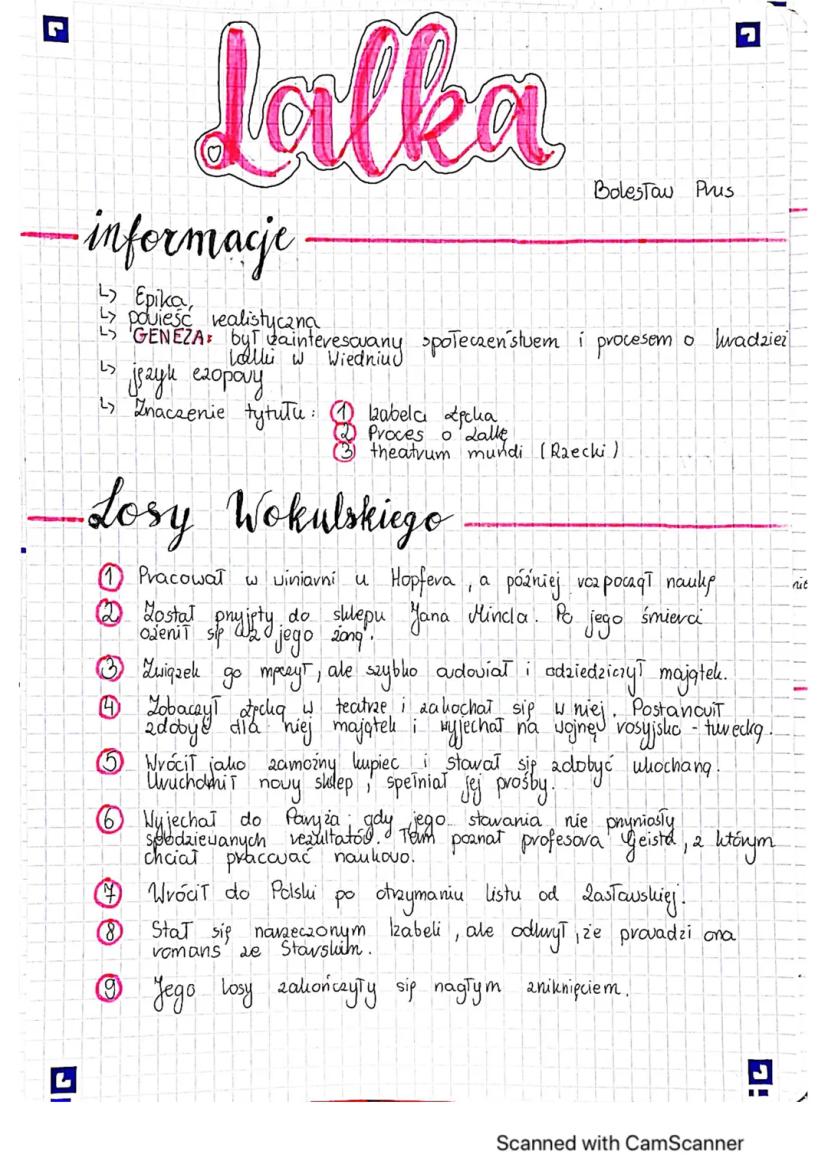 Lalka
Bolesław Prus
informacje
↳ Epika,
↳ powieść realistyczna
↳ GENEZA: był zainteresowany społeczeństwem i procesem o kradzież
lalki w Wiedniu
↳ język ezopowy
↳ Znaczenie tytułu: ① Izabela Łęcka
② Proces o Lalkę
③ theatrum mundi (Rzecki)
Losy Wokulskiego
① Pracował w winiarni u Hopfera, a później rozpoczął naukę
② Został przyjęty do sklepu Jana Mincla. Po jego śmierci
ożenił się z jego żoną.
③ Związek go męczył, ale szybko owdowiał i odziedziczył majątek.
④ Zobaczył Łęcką w teatrze i zakochał się w niej. Postanowił
zdobyć dla niej majątek i wyjechał na wojnę rosyjsko - turecką.
⑤ Wrócił jako zamożny kupiec i starał się zdobyć ukochaną.
Uruchomił nowy sklep, spełniał jej prośby.
⑥ Wyjechał do Paryża, gdy jego starania nie przyniosły
spodziewanych rezultatów. Tam poznał profesora Geista, z którym
chciał pracować naukowo.
⑦ Wrócił do Polski po otrzymaniu listu od Zasławskiej.
⑧ Stał się narzeczonym Izabeli, ale odkrył, że prowadzi ona
romans ze Starskim.
⑨ Jego losy zakończyły się nagłym zniknięciem.
nie
Scanned with CamScanner